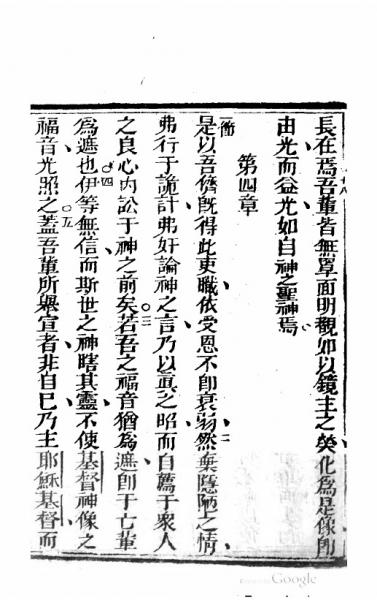 長在焉吾輩皆無罩面明觀如以鏡主之榮化為是像即
由光而益光如自神之聖神焉
第四章
一節
是以吾儕既得此吏職依受恩不即衰弱二然棄隱陋之情
弗行于詭計弗奸論神之言乃以真之昭而自薦于衆人
之良心內訟于神之前矣三若吾之福音猶為遮即于亡輩
為遮也四伊等無信而斯世之神瞎其靈不使基督神像之
福音光照之五蓋吾輩所舉宣者非自己乃主耶穌基督而
Google